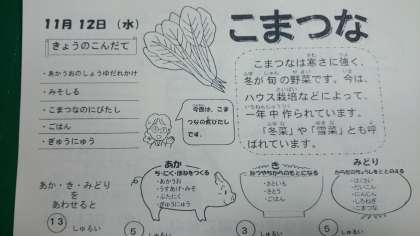 11月 12日 (水)
こまつな
きょうのこんだて
・あかうおのしょうゆだれかけ
・みそしる
・こまつなのにびたし
・ごはん
・ぎゅうにゅう
こまつなは寒さに強く、
冬が旬の野菜です。今は、
ハウス栽培などによって、
一年中作られています。
「冬菜」や「雪菜」とも呼
ばれています。
今日は、こま
つなの煮びたし
です。
あか・き・みどり
を
あわせると
13
しゅるい
あか
ち・にく・ほねをつくる
・あかうお
・うすあげ・みそ
・ぶたにく
・ぎゅうにゅう
5
しゅるい
き
・さとう
・ごはん
3
しゅるい
みどり
・はくさい
・だいこん
・にんじん
・しろねぎ
・こまつな
5
しゅるい